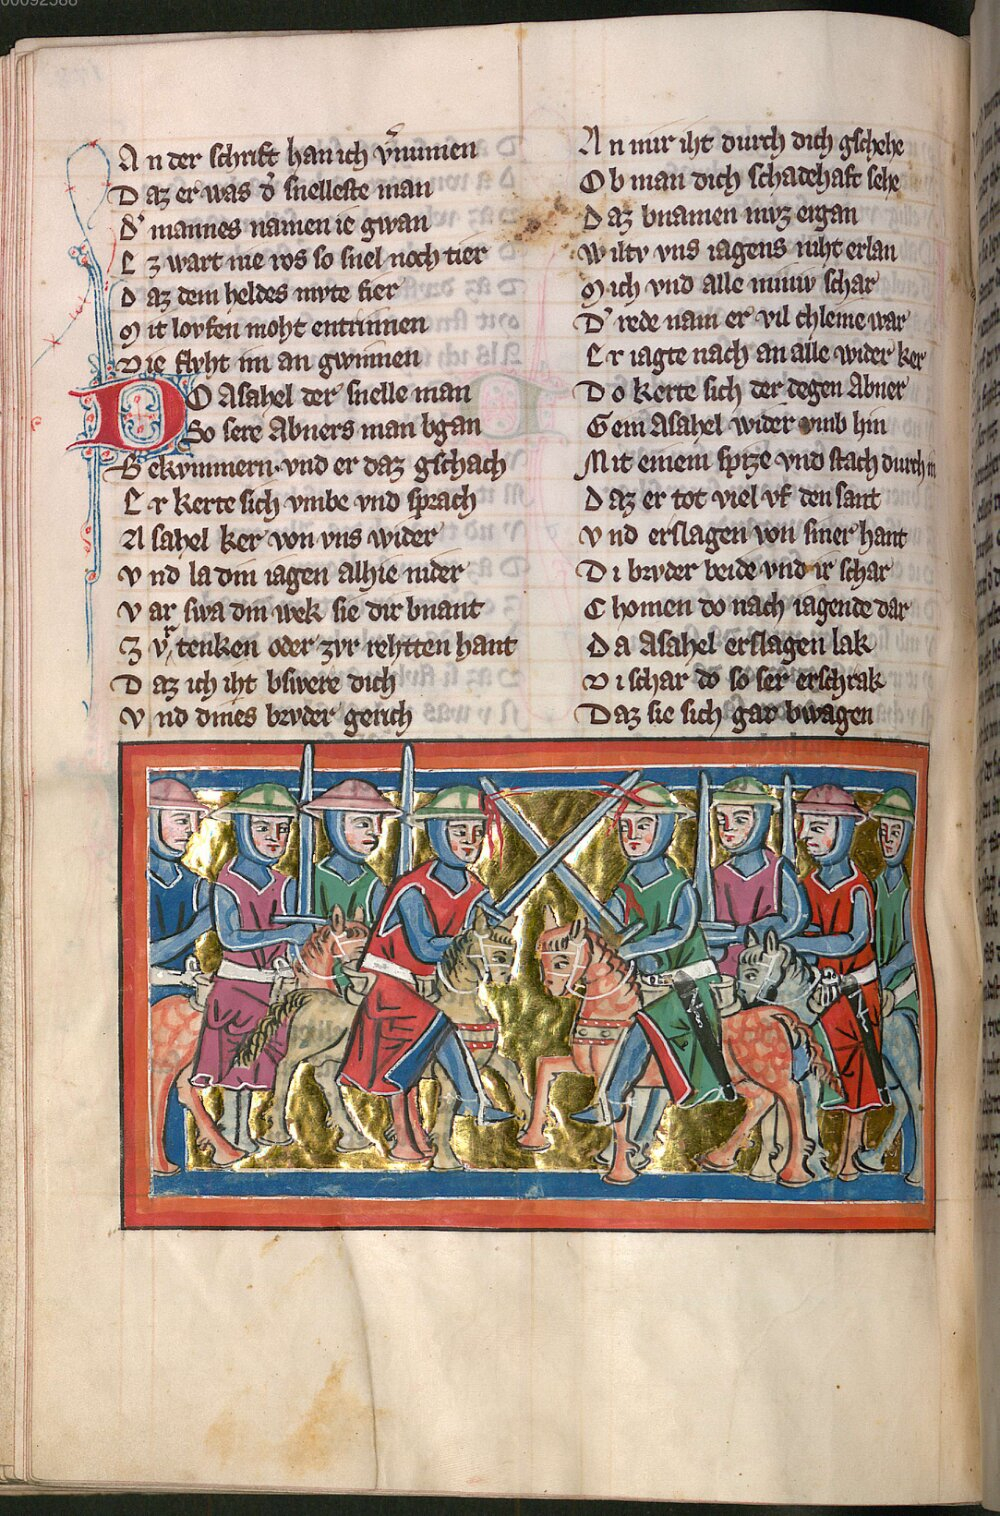 00092588
An der schrift han ich v̄numen
Daz er was d̾ snelleste man
D̾ mannes namen ie gwan
Ez wart nie ros so snel noch tier
Daz dem heldes mvte fier
Mit lovfen moht entrinnen
Die flvht im an gwinnen
DO Asahel der snelle man
So sere Abners man bgan
Bekvmmern· vnd er daz gschach
Er kerte sich vmbe vnd sprach
Asahel ker von vns wider
Vnd la din iagen alhie nider
Var swa din wek sie dir bnant
Zv̾ tenken oder zvr rehtten hant
Daz ich iht bswere dich
Vnd dines brvder gerich
An mir iht durch dich gschehe
Ob man dich schadehaft sehe
Daz bnamen mvz ergan
Wiltv vns iagens niht erlan
Mich vnd alle miniv schar
D̾ rede nam er vil chleine war
Er iagte nach an alle wider ker
Do kerte sich der degen Abner
Gein Asahel wider vmb hin
Mit einem spize vnd stach durch in
Daz er tot viel vf den sant
Vnd erslagen von siner hant
Di brvder beide vnd ir schar
Chomen do nach iagende dar
Da Asahel erslagen lak
Di schar do so ser erschrak
Daz sie sich gar bwagen